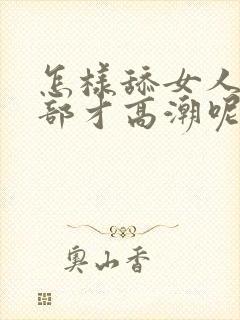 怎样舔女人
部才高潮呢
奥山香